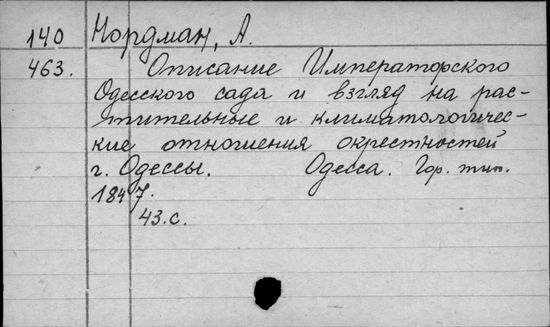 140 Нордман, А.
463. Описание Императорского
Одесского сада и взгляд на рас-
тительные и климатологичес-
кие отношения окрестностей
г. Одессы. Одесса. Гор. тип.
1847.
43.с.